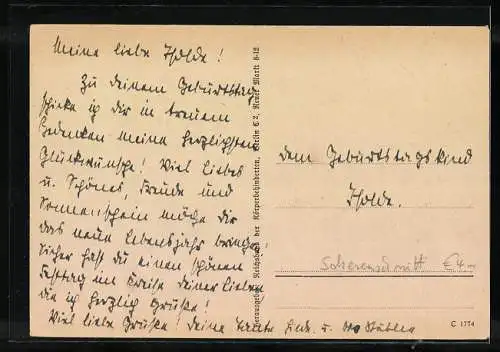 Meine liebe Isolde!
Zu deinem Geburtstag
schicke ich dir in treuem
Gedenken meine herzlichsten
Glückwünsche! Viel Liebes
u. Schönes, Freude und
Sonnenschein möge dir
das neue Lebensjahr bringen!
Sicher hast du einen schönen
Festtag im Kreise deiner Lieben
die ich herzlich grüße!
Viel liebe Grüße! deine Tante u.
Reichsbund der Körperbehinderten, Berlin C 2, Neuer Markt 8-12
dem Geburtstagskind
Isolde.
Scherenschnitt €4,-
C 1774